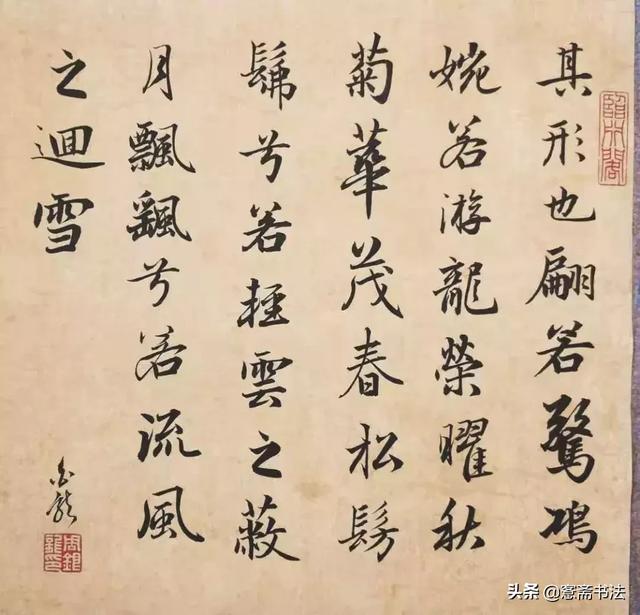 其形也翩若驚鴻
婉若游龍榮曜秋
菊華茂春松髣
髴兮若輕雲之蔽
月飄飖兮若流風
之迴雪
头条 @愙斋书法